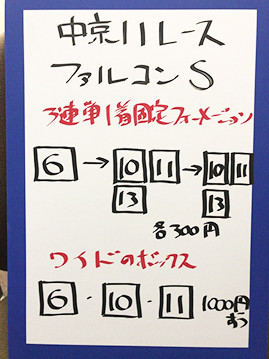 中京11レース
ファルコンS
3連単1着固定フォーメーション
6→10 11→10 11
13 13
各300円
ワイドのボックス
6・10・11 1000円
ずつ